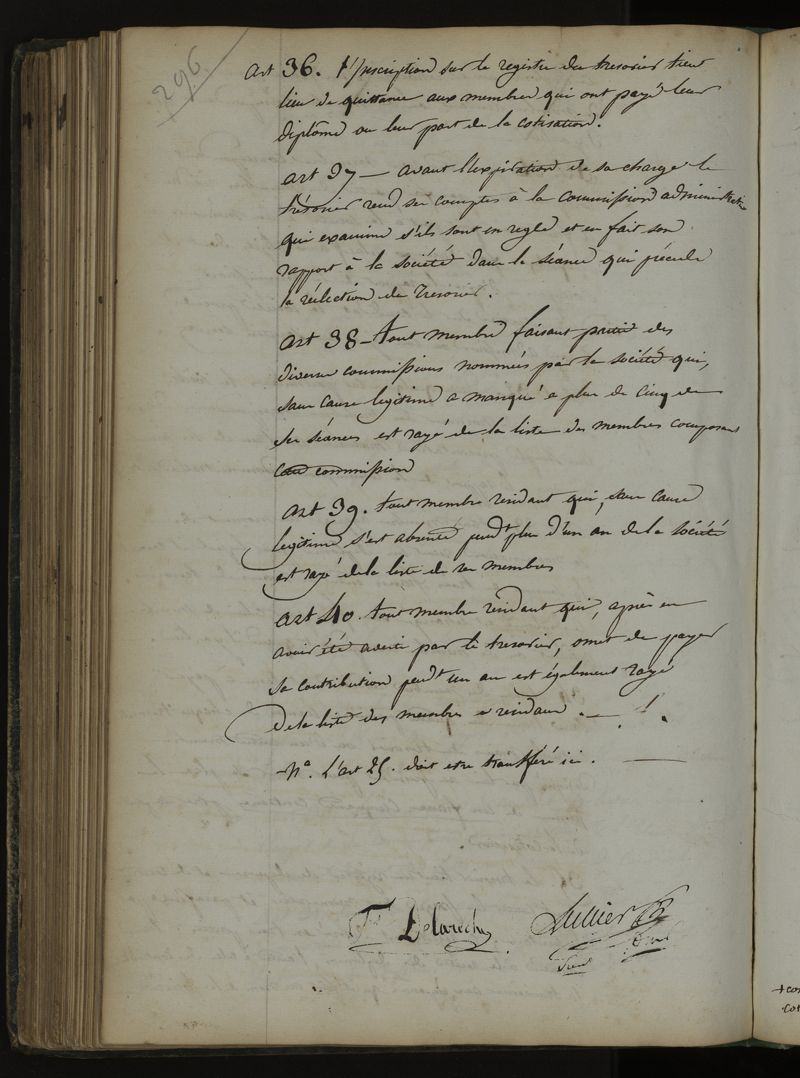 296
Art 36. l'Inscription sur le registre du tresorier tient
lieu de quittance aux membres qui ont payé leur
diplome ou leur part de la cotisation.
art 37 — avant l'expiration de sa charge le
trésorier rend ses comptes à la commission administrative
qui examine s'ils sont en regle et en fait son
rapport à la société dans la séance qui précede
la réélection du Tresorier.
art 38 — tout membre faisant partie des
diverses commissions nommées par la société qui,
sans cause legitime a manqué a plus de cinq de
ses séances est rayé de la liste des membres composant
commission
art 39. tout membre residant qui, sans cause
legitime s'est absenté pendt plus d'un an de la société
est rayé de la liste de ses membres
art 40. tout membre residant qui, après en
avoir été averti par le tresorier, omet de payer
sa contribution pendt un an est également rayé
de la liste des membres residans. —
Na. L'art 25. doit etre transféré ici. —
Delaroche Lullier
+ co
co